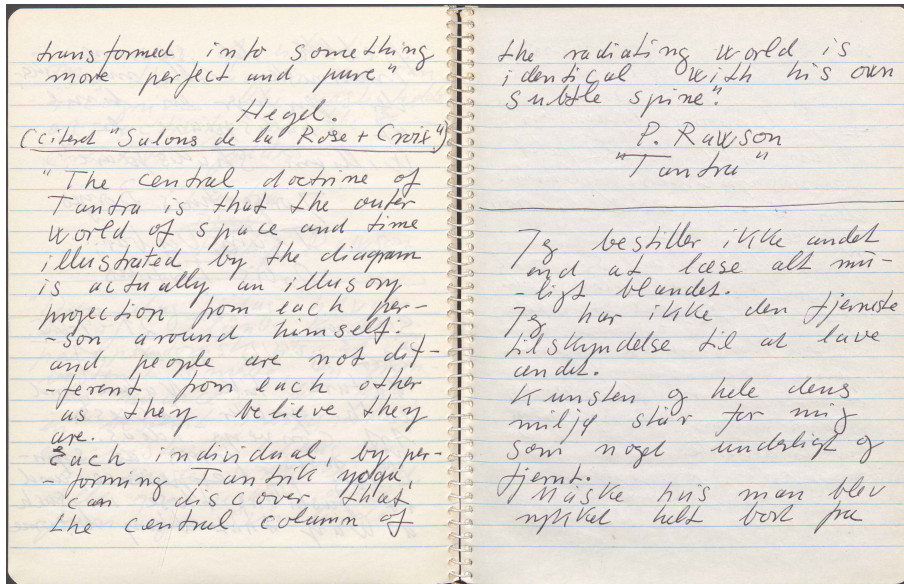 transformed into something
more perfect and pure"
Hegel.
(citerd "Salons de la Rose + Croix")
"The central doctrine of
Tantra is that the outer
world of space and time
illustrated by the diagram
is actually an illusory
projection from each per-
-son around himself.
and people are not dif-
-ferent from each other
as they believe they
are.
Each individual, by per-
-forming Tantrik yoga,
can discover that
the central column of
the radiating world is
identical with his own
subtle spine".
P. Rawson
"Tantra"
Jeg bestiller ikke andet
end at læse alt mu-
-ligt blandet.
Jeg har ikke den fjerneste
tilskyndelse til at lave
andet.
Kunsten og hele dens
miljø står for mig
som noget underligt og
fjernt.
Måske hvis man blev
rykket helt bort fra